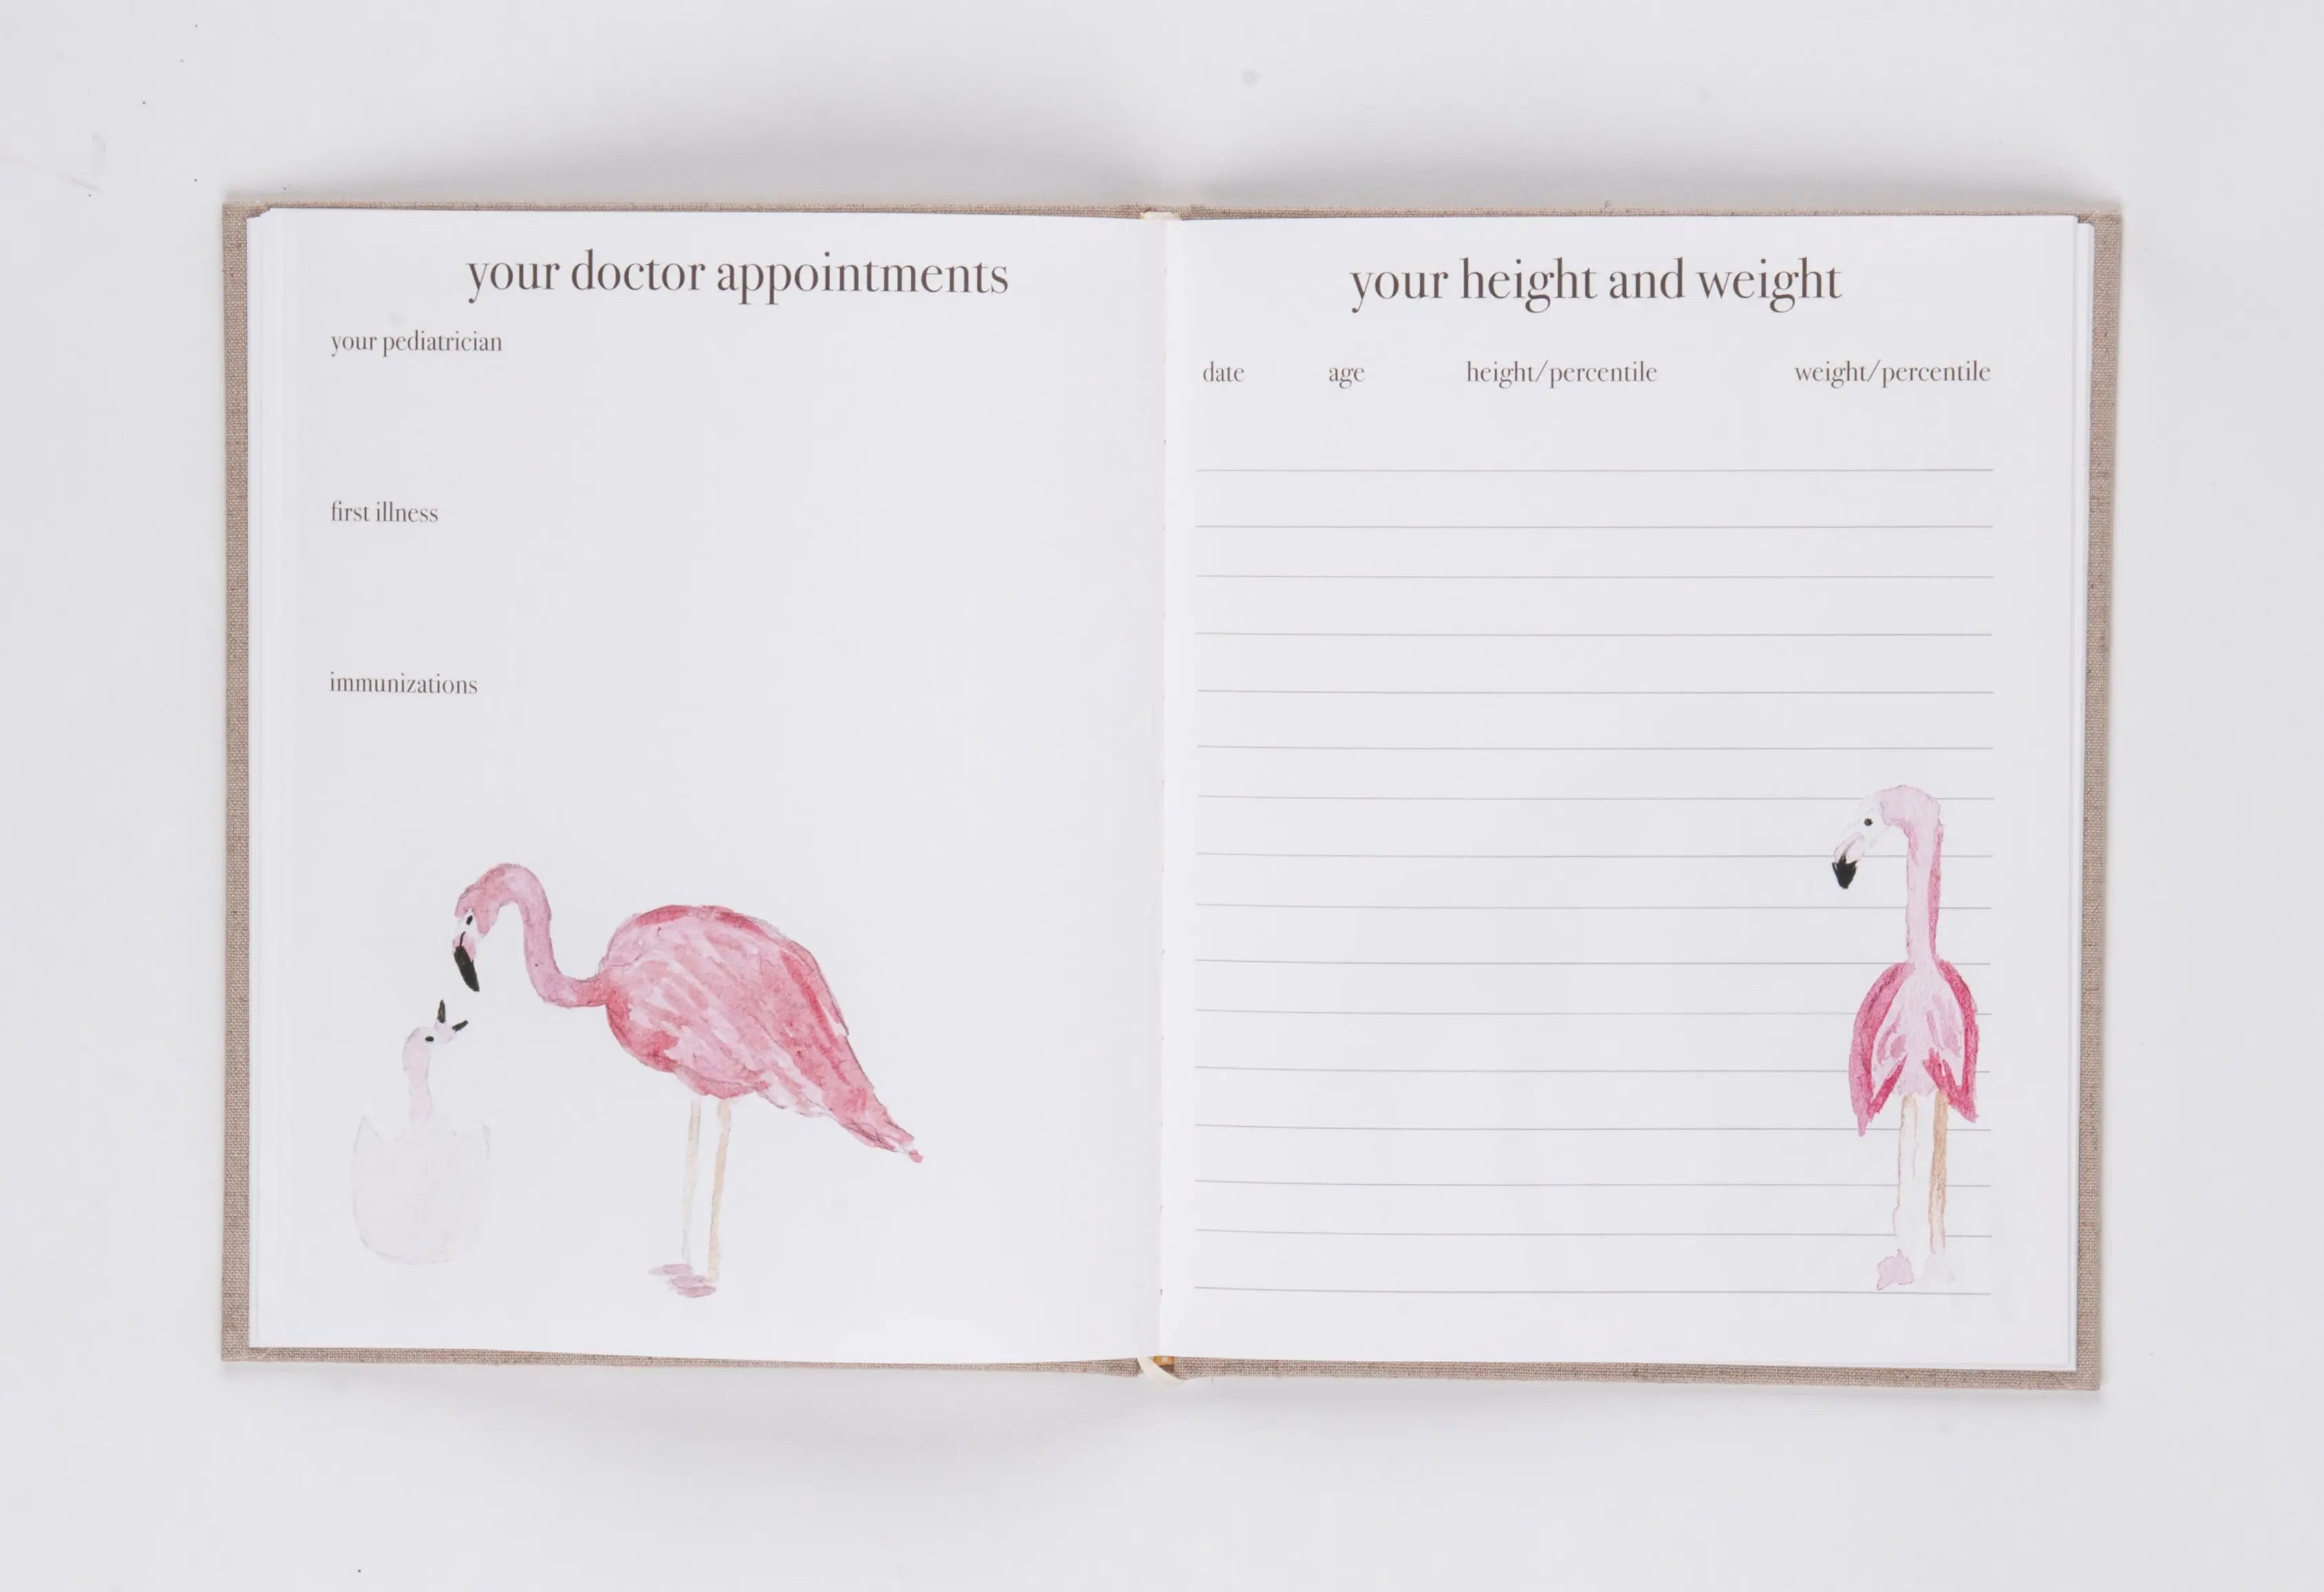 your doctor appointments
your pediatrician
first illness
immunizations
your height and weight
date age height/percentile weight/percentile